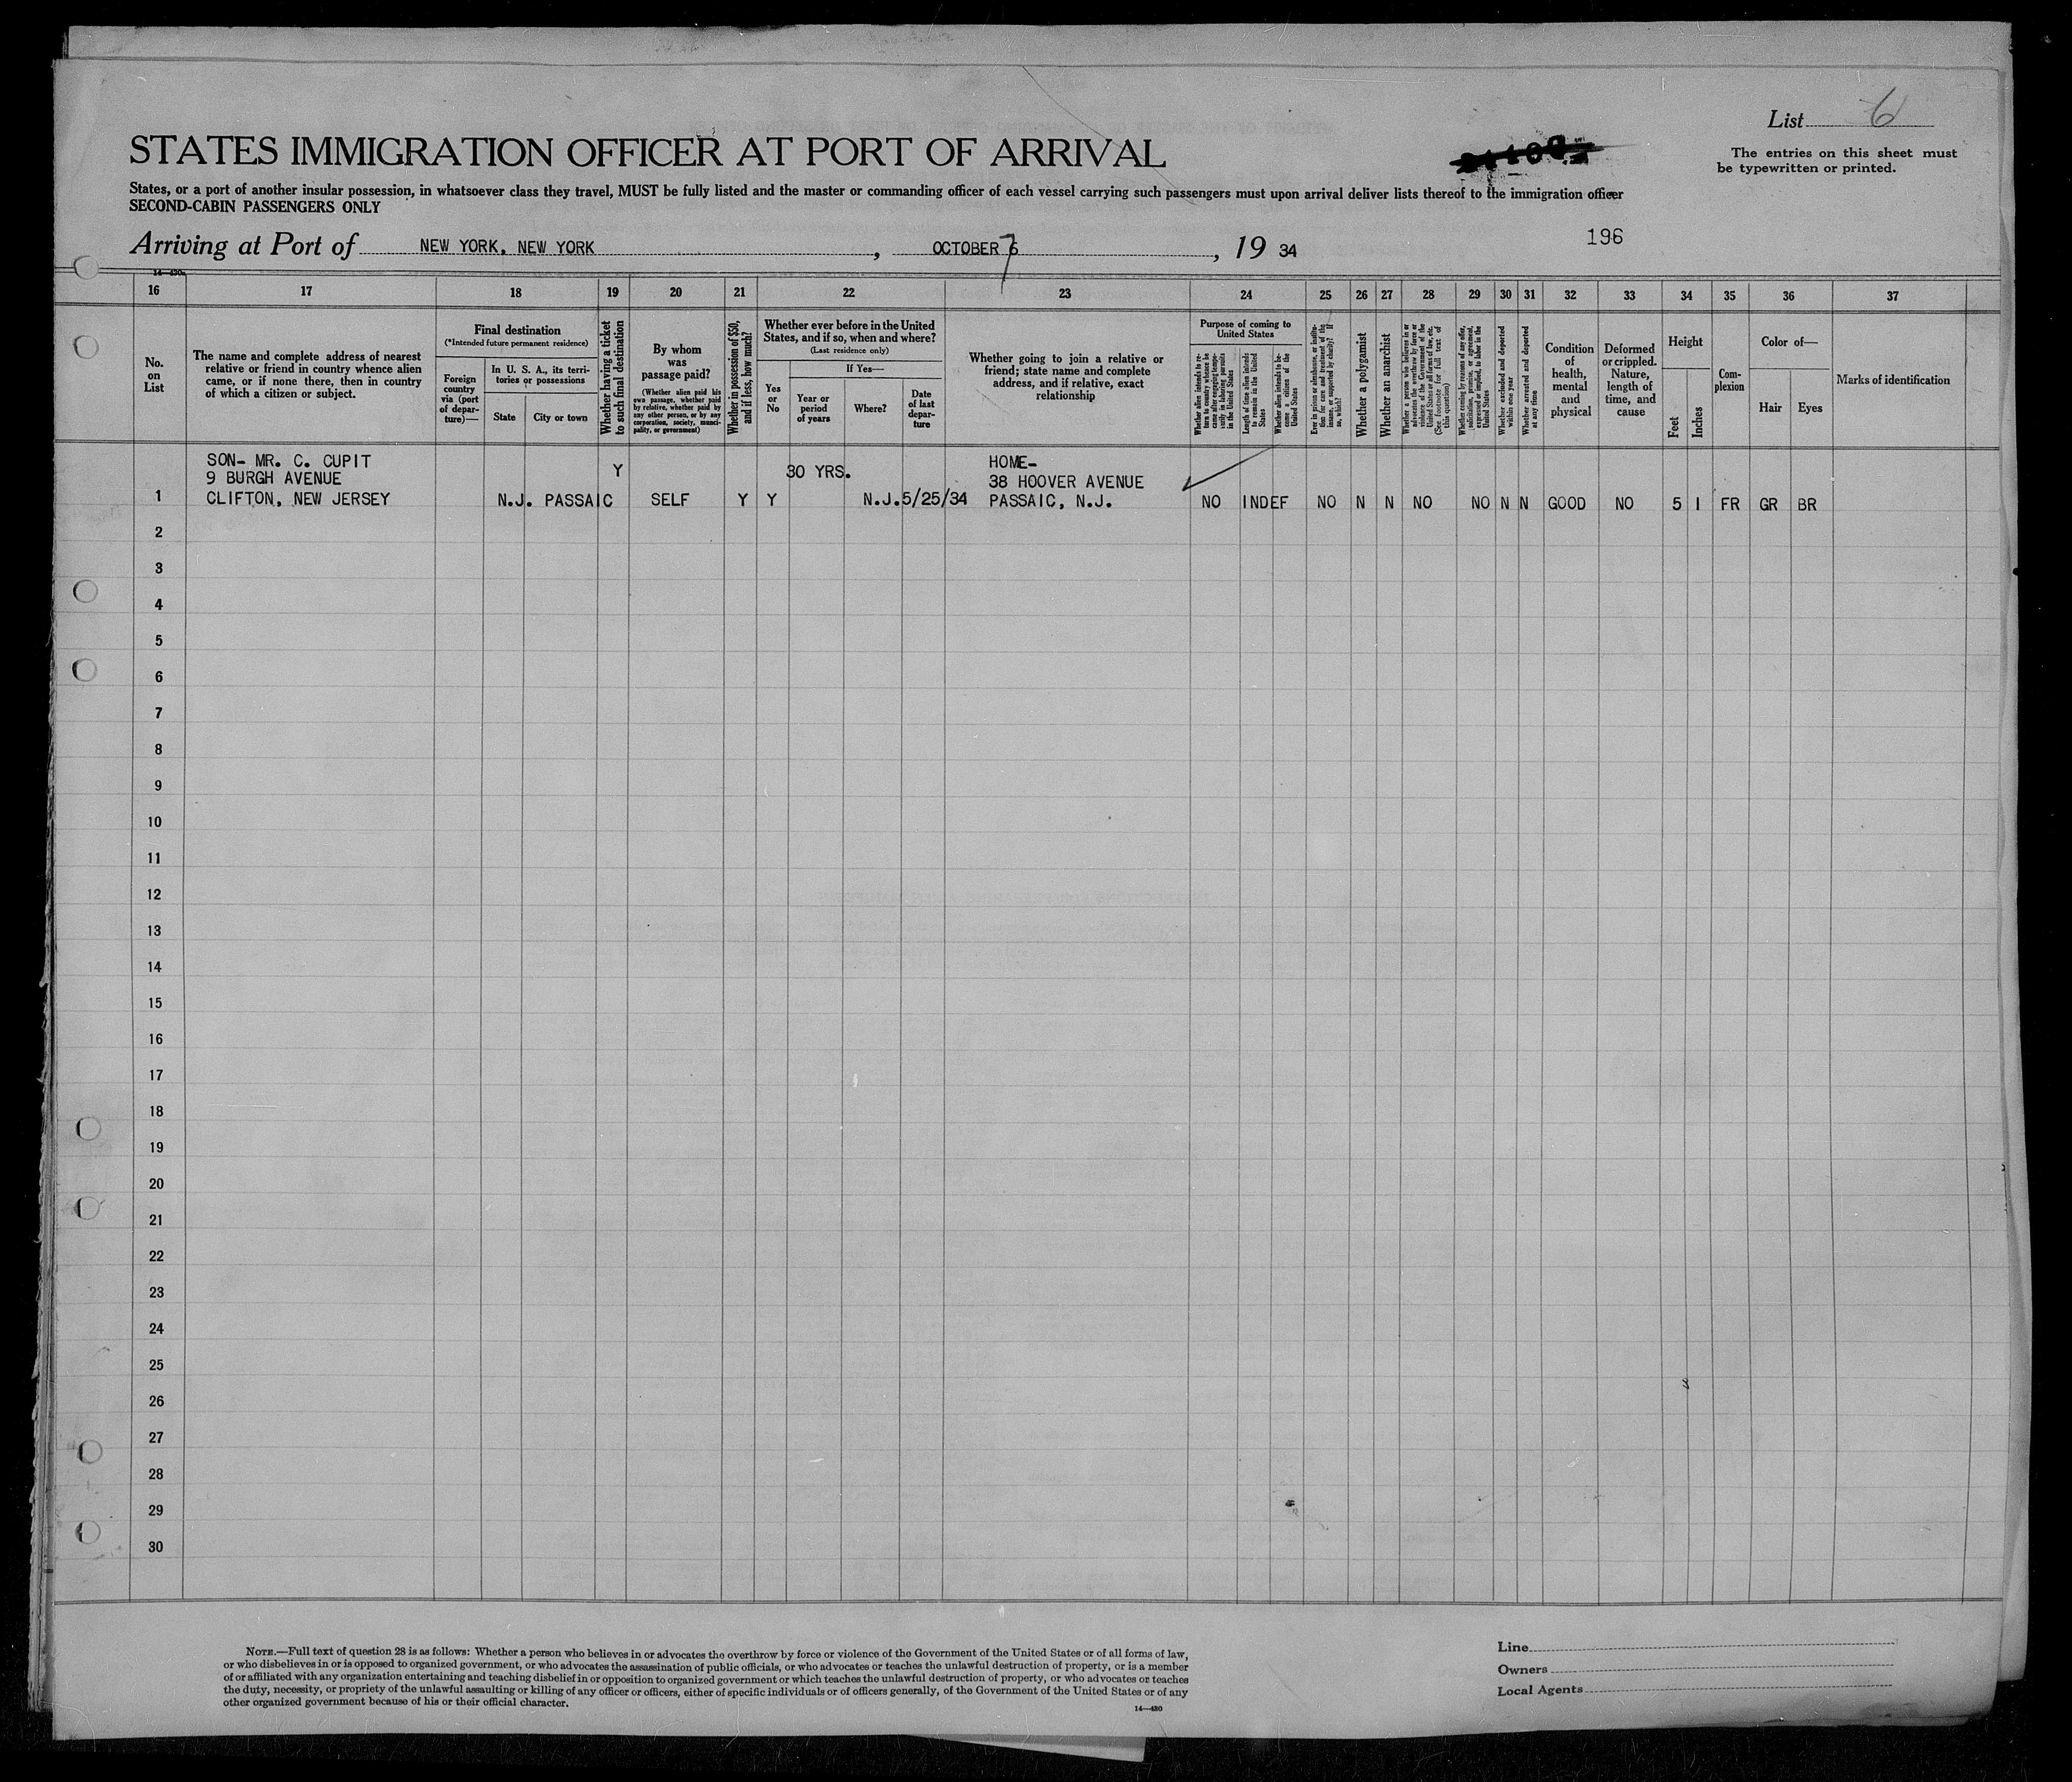 List 6
STATES IMMIGRATION OFFICER AT PORT OF ARRIVAL
The entries on this sheet must
be typewritten or printed.
States, or a port of another insular possession, in whatsoever class they travel, MUST be fully listed and the master or commanding officer of each vessel carrying such passengers must upon arrival deliver lists thereof to the immigration officer
SECOND-CABIN PASSENGERS ONLY
Arriving at Port of NEW YORK, NEW YORK, OCTOBER 7, 19 34
196
14—430a
16 17 18 19 20 21 22 23 24 25 26 27 28 29 30 31 32 33 34 35 36 37
No.
on
List
The name and complete address of nearest
relative or friend in country whence alien
came, or if none there, then in country
of which a citizen or subject.
Final destination
(*Intended future permanent residence)
Foreign
country
via (port
of depar-
ture)—
In U. S. A., its terri-
tories or possessions
State
City or town
Whether having a ticket
to such final destination
By whom
was
passage paid?
(Whether alien paid his
own passage, whether paid
by relative, whether paid by
any other person, or by any
corporation, society, munici-
pality, or government)
Whether in possession of $50,
and if less, how much?
Whether ever before in the United
States, and if so, when and where?
(Last residence only)
Yes
or
No
If Yes—
Year or
period
of years
Where?
Date
of last
depar-
ture
Whether going to join a relative or
friend; state name and complete
address, and if relative, exact
relationship
Purpose of coming to
United States
Whether alien intends to re-
turn to country whence he
came after engaging tempo-
rarily in laboring pursuits
in the United States
Length of time alien intends
to remain in the United
States
Whether alien intends to be-
come a citizen of the
United States
Ever in prison or almshouse, or institu-
tion for care and treatment of the
insane, or supported by charity? If
so, which?
Whether a polygamist
Whether an anarchist
Whether a person who believes in or
advocates the overthrow by force or
violence of the Government of the
United States or all forms of law, etc.
(See footnote for full text of
this question)
Whether coming by reasons of any offer,
solicitation, promise, or agreement,
expressed or implied, to labor in the
United States
Whether excluded and deported
within one year
Whether arrested and deported
at any time
Condition
of
health,
mental
and
physical
Deformed
or crippled.
Nature,
length of
time, and
cause
Height
Feet
Inches
Com-
plexion
Color of—
Hair
Eyes
Marks of identification
SON- MR. C. CUPIT
9 BURGH AVENUE
1 CLIFTON, NEW JERSEY N.J. PASSAIC Y SELF Y Y 30 YRS. N.J. 5/25/34
HOME-
38 HOOVER AVENUE
PASSAIC, N.J. NO INDEF NO N N NO NO N N GOOD NO 5 1 FR GR BR
2
3
4
5
6
7
8
9
10
11
12
13
14
15
16
17
18
19
20
21
22
23
24
25
26
27
28
29
30
NOTE.—Full text of question 28 is as follows: Whether a person who believes in or advocates the overthrow by force or violence of the Government of the United States or of all forms of law,
or who disbelieves in or is opposed to organized government, or who advocates the assassination of public officials, or who advocates or teaches the unlawful destruction of property, or is a member
of or affiliated with any organization entertaining and teaching disbelief in or opposition to organized government or which teaches the unlawful destruction of property, or who advocates or teaches
the duty, necessity, or propriety of the unlawful assaulting or killing of any officer or officers, either of specific individuals or of officers generally, of the Government of the United States or of any
other organized government because of his or their official character.
14—430
Line
Owners
Local Agents